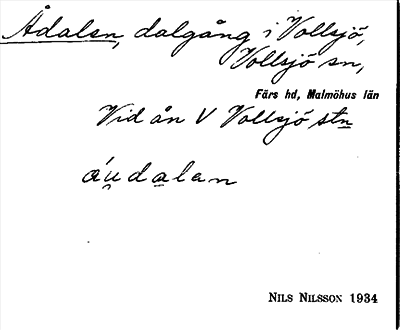 Ådalen, dalgång i Vollsjö,
Vollsjö sn,
Färs hd, Malmöhus län
Vid ån V Vollsjö stn
áu̯dalan
NILS NILSSON 1934